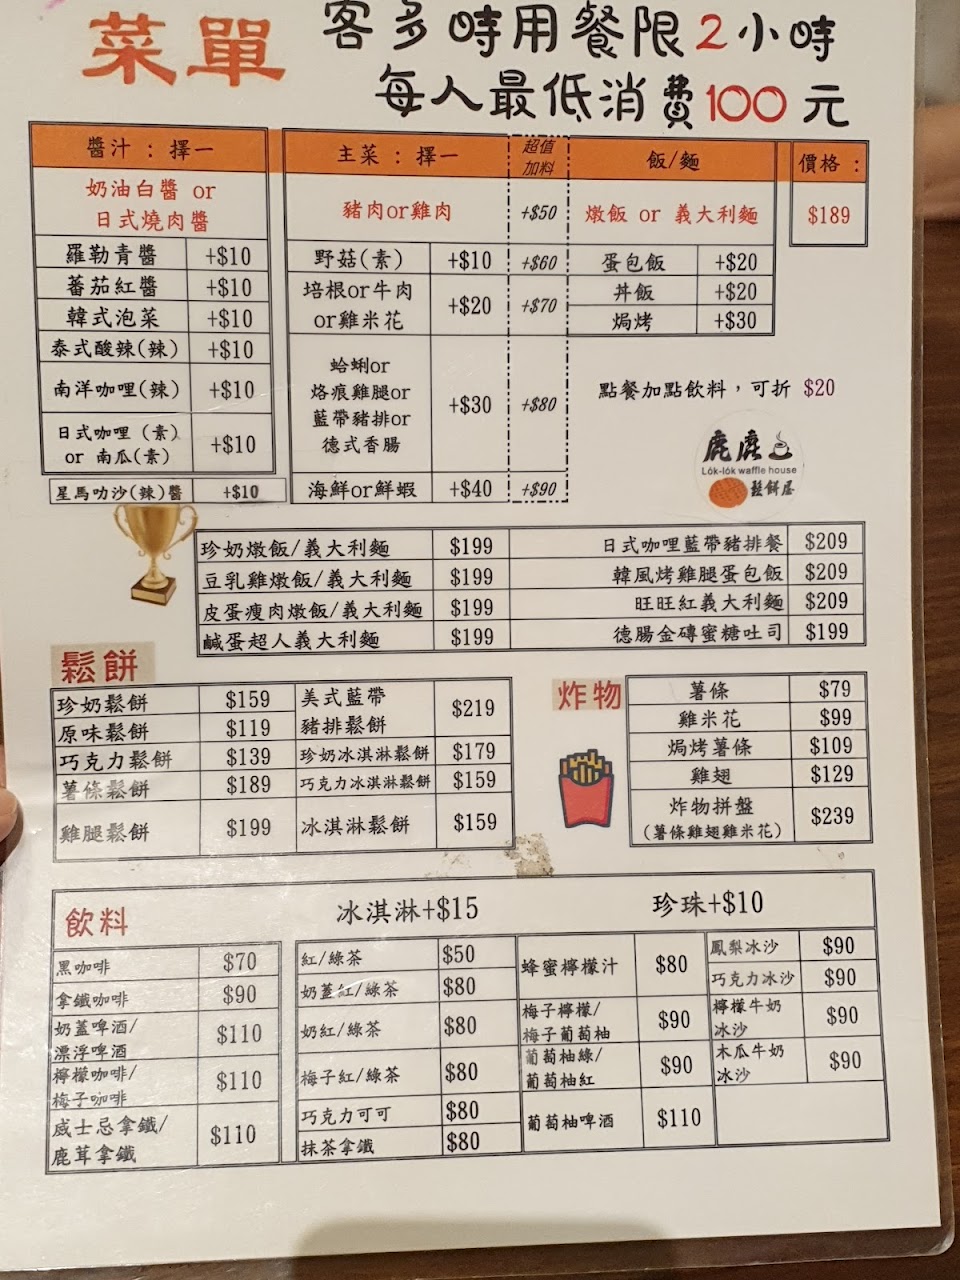 菜單
客多時用餐限2小時
每人最低消費100元
醬汁：擇一
奶油白醬 or
日式燒肉醬
羅勒青醬 +$10
蕃茄紅醬 +$10
韓式泡菜 +$10
泰式酸辣(辣) +$10
南洋咖哩(辣) +$10
日式咖哩 (素)
or 南瓜(素)
+$10
星馬叻沙(辣)醬 +$10
主菜：擇一
超值
加料
豬肉or雞肉 +$50
野菇(素) +$10 +$60
培根or牛肉
or雞米花
+$20 +$70
蛤蜊or
烙痕雞腿or
藍帶豬排or
德式香腸
+$30 +$80
海鮮or鮮蝦 +$40 +$90
飯/麵
燉飯 or 義大利麵
蛋包飯 +$20
丼飯 +$20
焗烤 +$30
價格：
$189
點餐加點飲料，可折 $20
鹿鹿
Lók-lók waffle house
鬆餅屋
珍奶燉飯/義大利麵 $199
豆乳雞燉飯/義大利麵 $199
皮蛋瘦肉燉飯/義大利麵 $199
鹹蛋超人義大利麵 $199
日式咖哩藍帶豬排餐 $209
韓風烤雞腿蛋包飯 $209
旺旺紅義大利麵 $209
德腸金磚蜜糖吐司 $199
鬆餅
珍奶鬆餅 $159
原味鬆餅 $119
巧克力鬆餅 $139
薯條鬆餅 $189
雞腿鬆餅 $199
美式藍帶
豬排鬆餅
$219
珍奶冰淇淋鬆餅 $179
巧克力冰淇淋鬆餅 $159
冰淇淋鬆餅 $159
炸物
薯條 $79
雞米花 $99
焗烤薯條 $109
雞翅 $129
炸物拼盤
(薯條雞翅雞米花)
$239
飲料
冰淇淋+$15
珍珠+$10
黑咖啡 $70
拿鐵咖啡 $90
奶蓋啤酒/
漂浮啤酒
$110
檸檬咖啡/
梅子咖啡
$110
威士忌拿鐵/
鹿茸拿鐵
$110
紅/綠茶 $50
奶蓋紅/綠茶 $80
奶紅/綠茶 $80
梅子紅/綠茶 $80
巧克力可可 $80
抹茶拿鐵 $80
蜂蜜檸檬汁 $80
梅子檸檬/
梅子葡萄柚
$90
葡萄柚綠/
葡萄柚紅
$90
葡萄柚啤酒 $110
鳳梨冰沙 $90
巧克力冰沙 $90
檸檬牛奶
冰沙
$90
木瓜牛奶
冰沙
$90